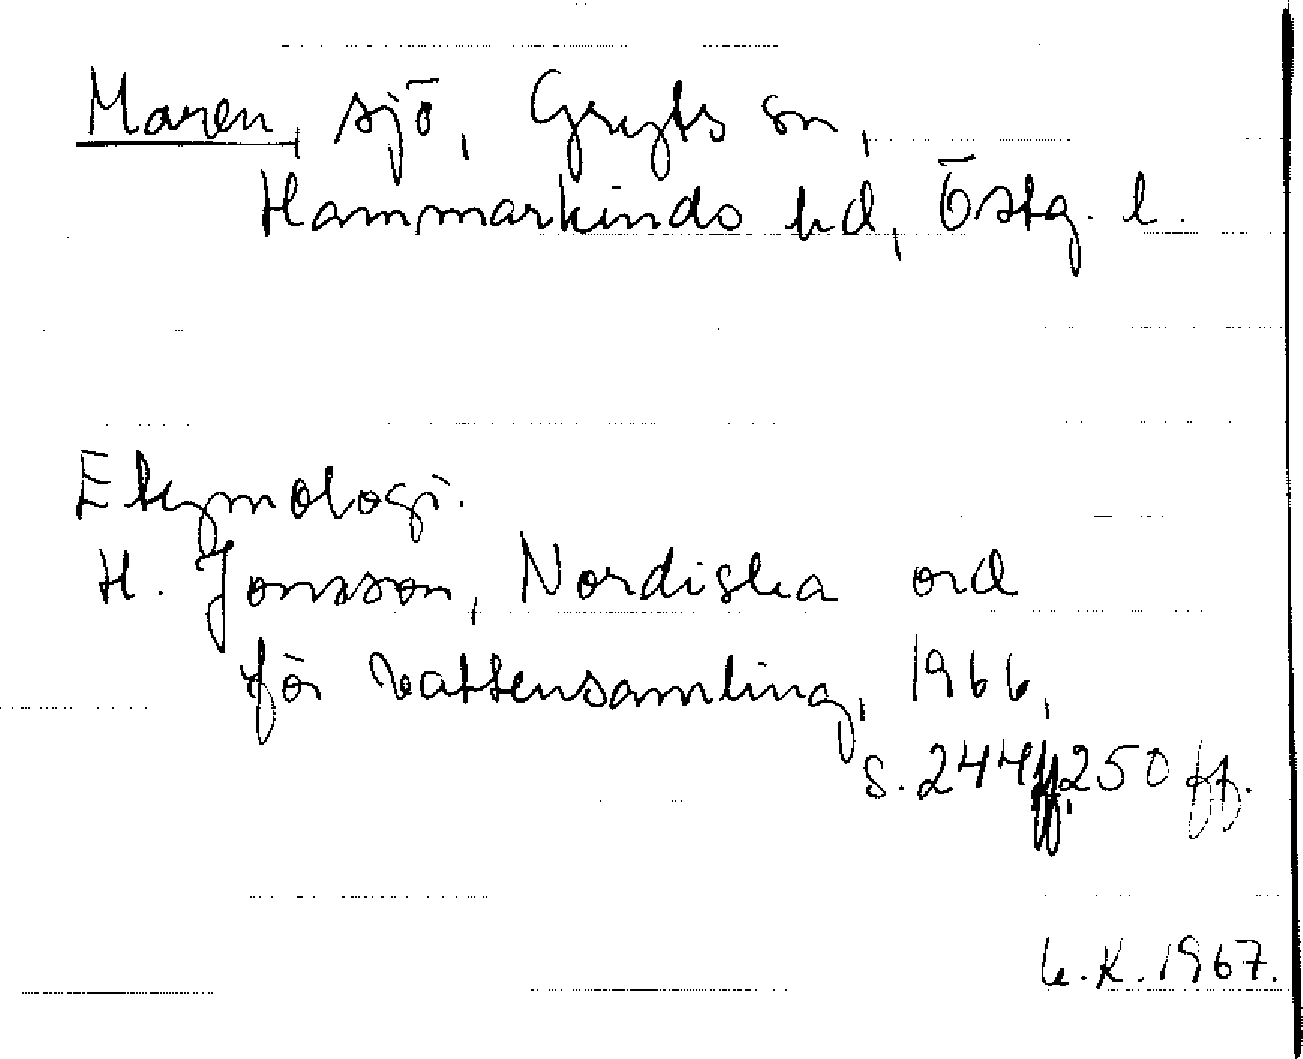 Maren, sjö, Gryts sn,
Hammarkinds hd, Östg. l.
Etymologi.
H. Jonsson, Nordiska ord
för vattensamling, 1966,
s. 244 ff, 250 ff.
K. 1967.